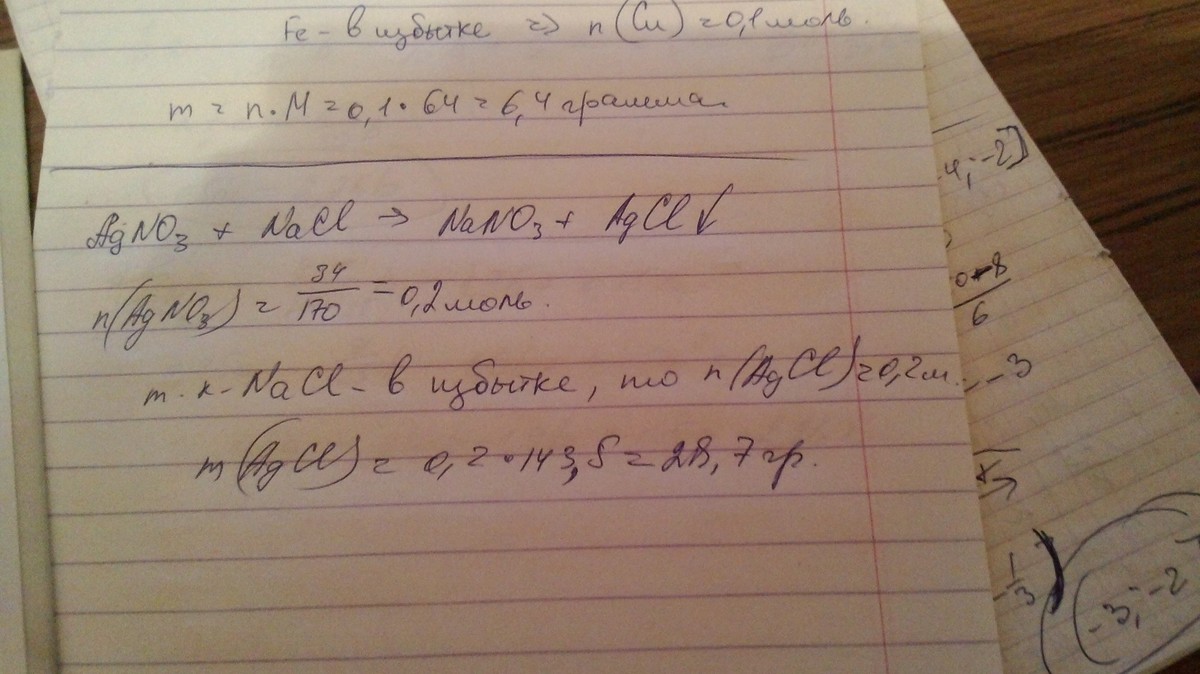 Fe - в избытке => n(Cu) = 0,1 моль.
m = n · M = 0,1 · 64 = 6,4 грамма.
AgNO₃ + NaCl → NaNO₃ + AgCl↓
n(AgNO₃) = 34/170 = 0,2 моль.
т.к - NaCl - в избытке, то n(AgCl) = 0,2 м.
m(AgCl) = 0,2 · 143,5 = 28,7 гр.
-4; -2]
0-8
6
-3
1/3
-3; -2